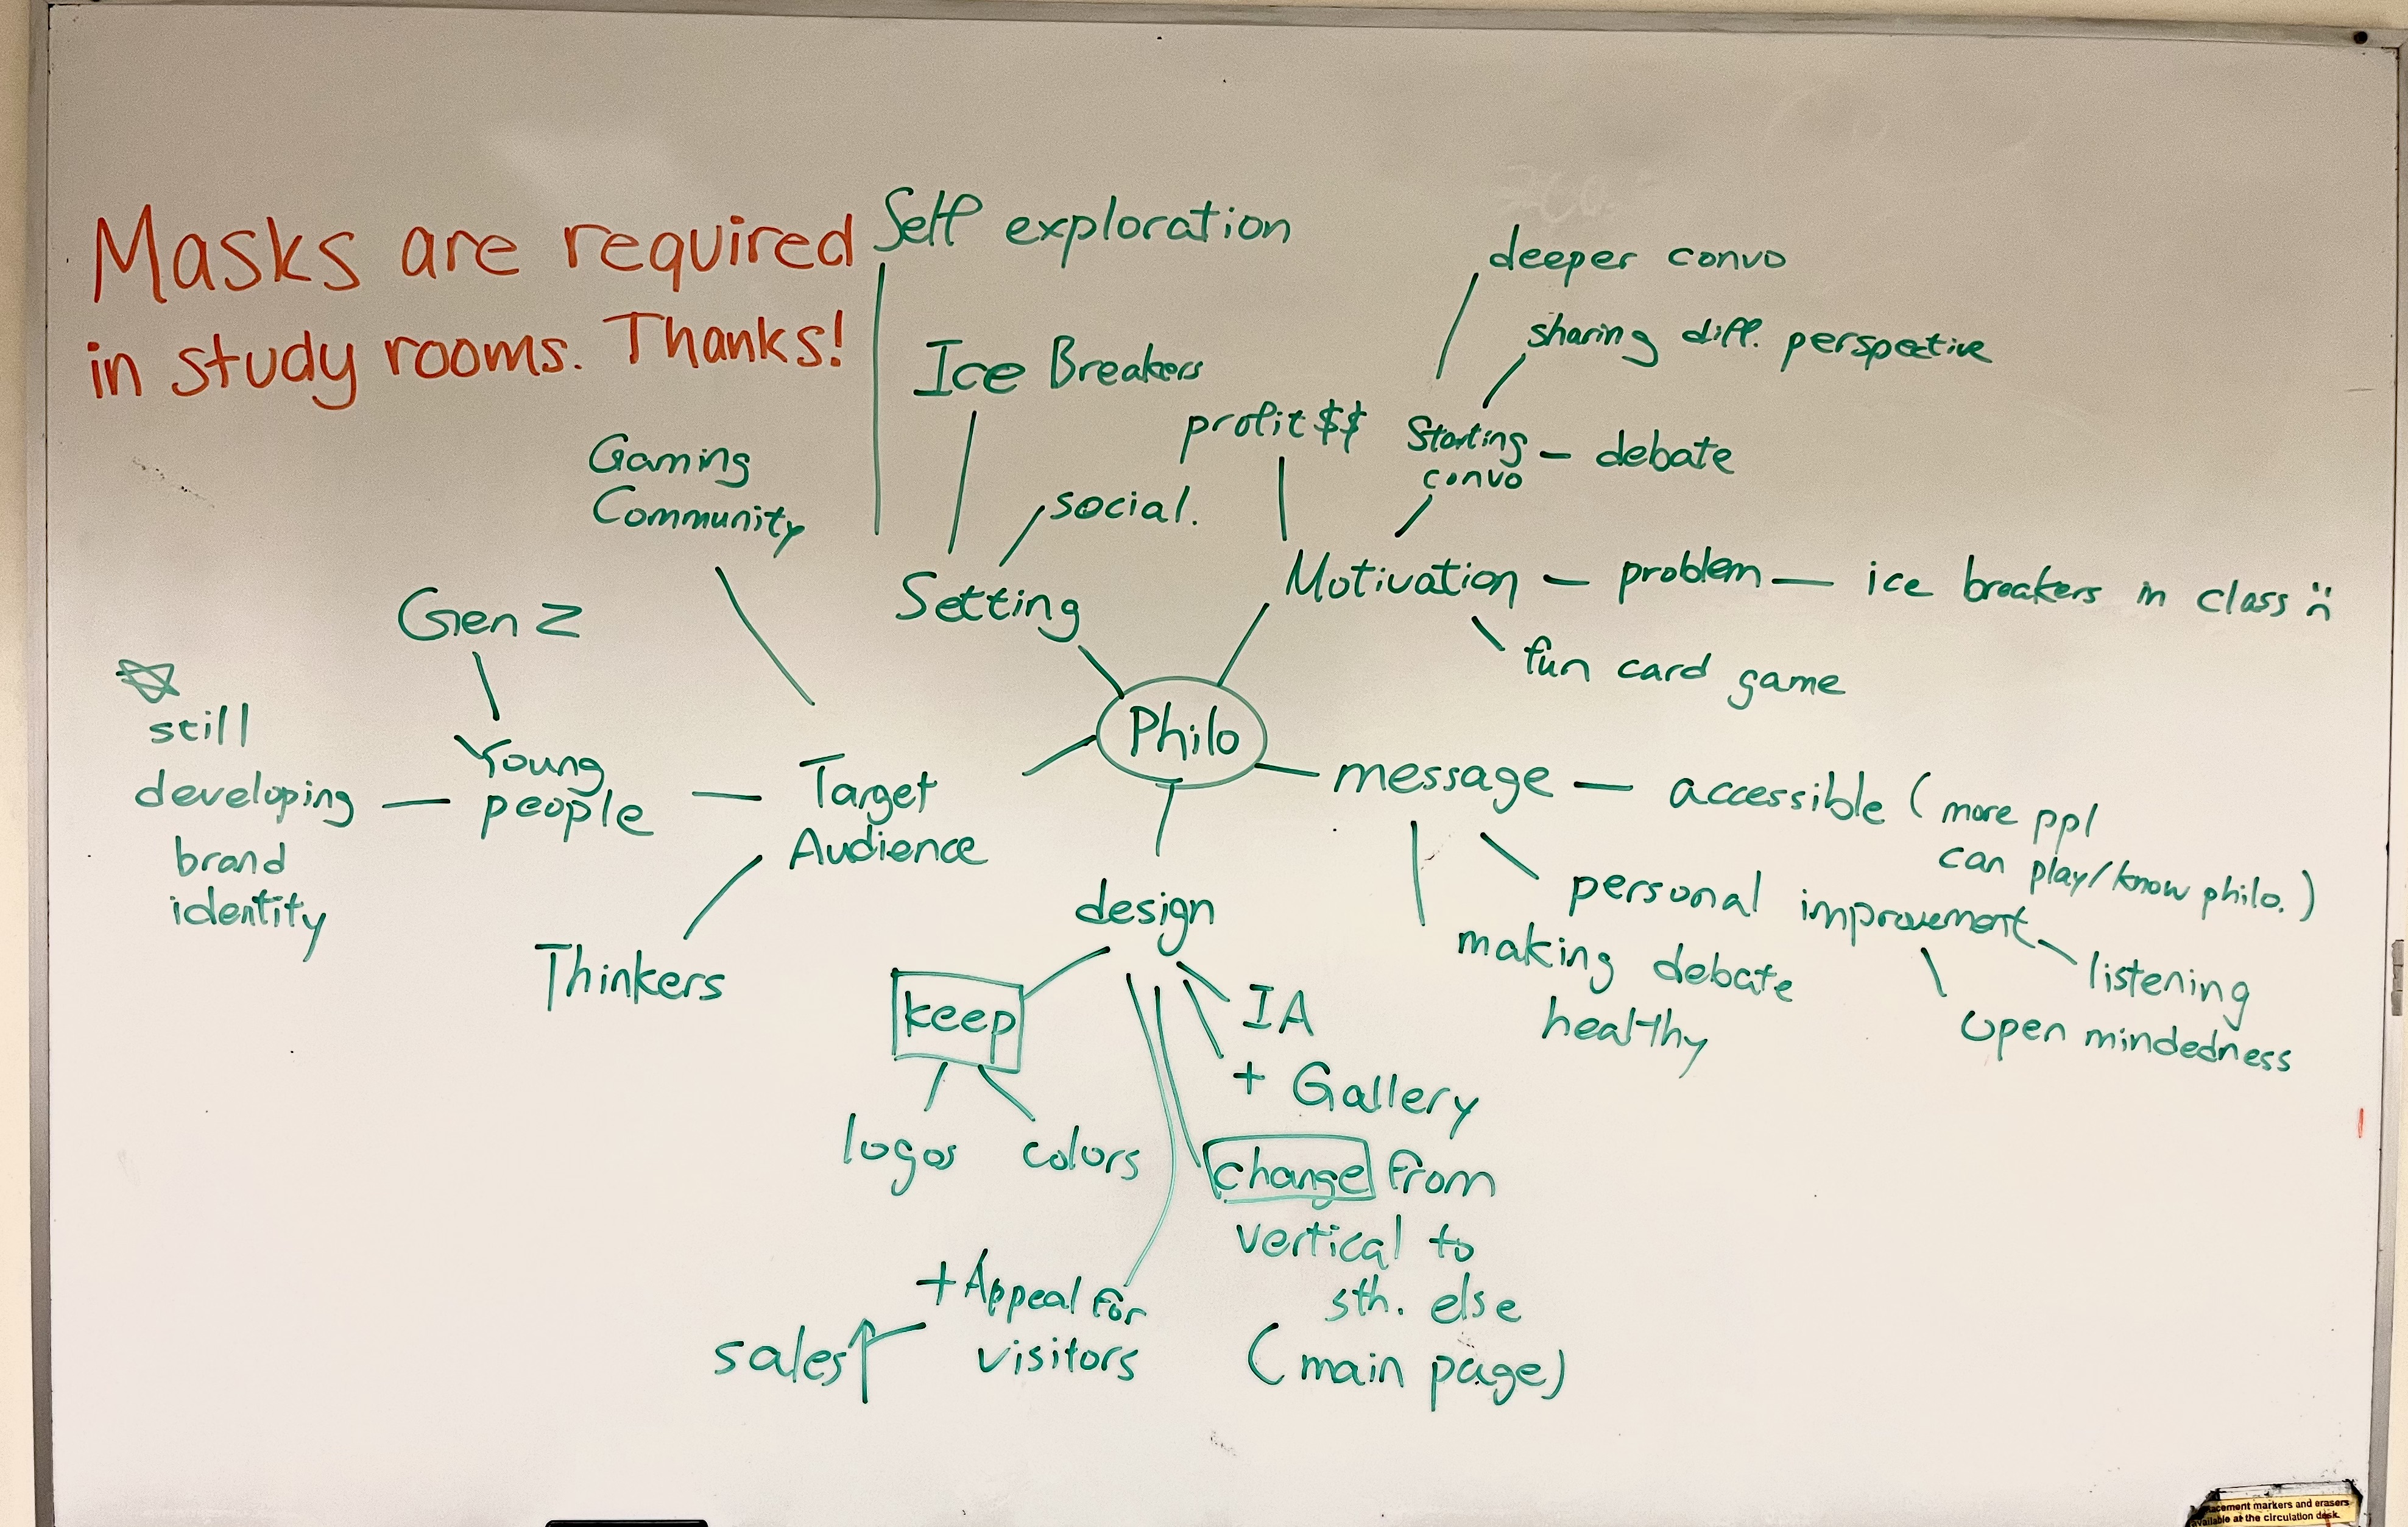 Masks are required
in study rooms. Thanks!
Self exploration
Ice Breakers
social.
Setting
Gaming
Community
Gen Z
still
developing
brand
identity
Young
people
Target
Audience
Thinkers
Philo
profit $$
deeper convo
sharing diff. perspective
Starting
convo
debate
Motivation
problem
ice breakers in class
fun card game
message
accessible (more ppl
can play/know philo.)
personal improvement
listening
open mindedness
making debate
healthy
design
keep
logos
colors
IA
+ Gallery
change from
vertical to
sth. else
(main page)
+ Appeal for
visitors
sales↑
acement markers and erasers
available at the circulation desk.